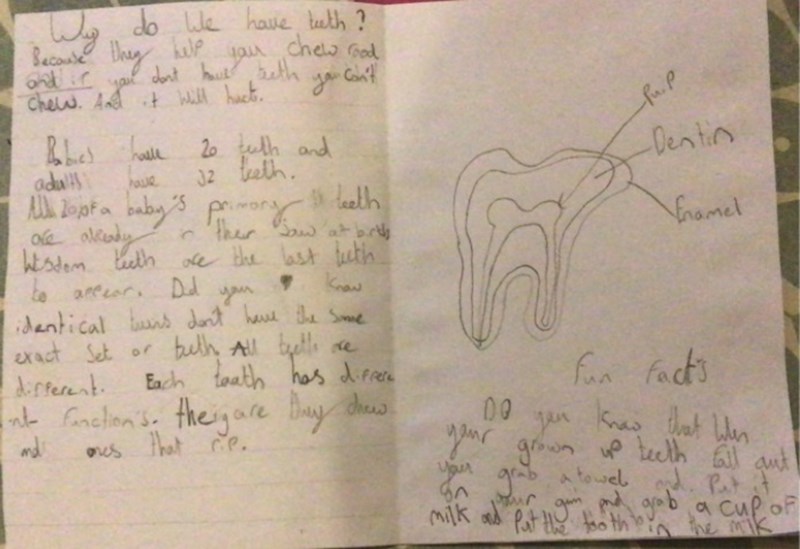 Why do We have teeth?
Because they help you chew food
and if you dont have teeth you can't
chew. And it will hurt.
Babies have 20 teeth and
adults have 32 teeth.
All 20 of a baby's primary teeth
are already in their Jaw at birth
Wisdom teeth are the last teeth
to appear. Did you know
identical twins don't have the same
exact set of teeth. All teeth are
different. Each tooth has differe
nt function's. they are they chew
and ones that rip.
Pulp
Dentin
Enamel
Fun Fact's
DO you know that when
your grown up teeth fall out
you grab a towel and. Put it
on your gum and grab a cup of
milk and Put the tooth in the milk